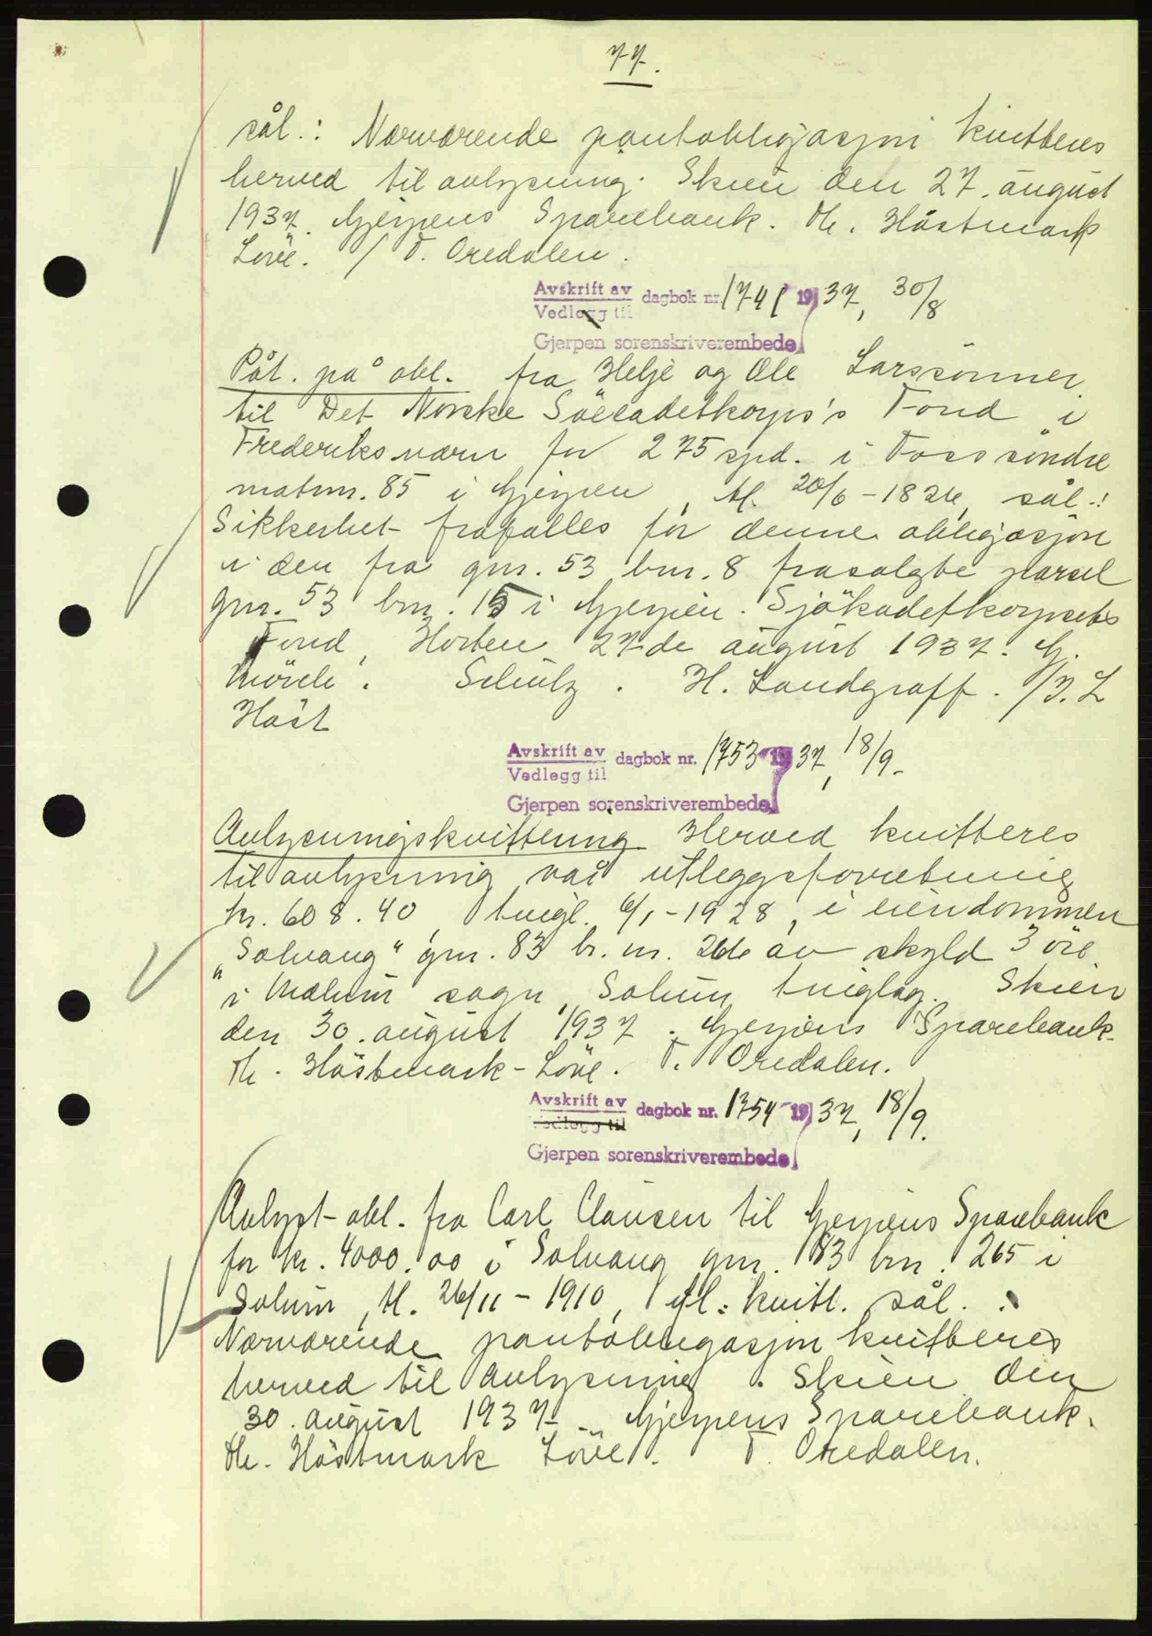 77.
sål.: Nærværende pantobligasjon kvitteres
herved til avlysning. Skien den 27. august
1937. Gjerpens Sparebank. Th. Håstmark
Løve. / T. Oredalen.
Avskrift av
Vedlegg til dagbok nr. 1741 1937, 30/8
Gjerpen sorenskriverembede
Påt. på obl. fra Helje og Ole Larssønner
til Det Norske Søecadetkorps's Fond i
Frederiksværn for 275 spd. i Foss søndre
matnr. 85 i Gjerpen, tl. 20/6-1826, sål.:
Sikkerhet frafalles for denne obligasjon
i den fra gnr. 53 bnr. 8 frasolgte parsel
gnr. 53 bnr. 15 i Gjerpen. Sjökadetkorpsets
Fond, Horten 27de august 1937. G.
Mörch. Schulz. H. Landgraff. /J. L
Håst
Avskrift av
Vedlegg til dagbok nr. 1753 1937, 18/9.
Gjerpen sorenskriverembede
Avlysningskvittering Herved kvitteres
til avlysning vår utleggsforretning
kr. 608.40, tingl. 6/1-1928, i eiendommen
"Solvang" gnr. 83 b.nr. 266 av skyld 3 øre
i Mælum sogn, Solum tinglag. Skien
den 30. august 1937. Gjerpens Sparebank.
Th. Håstmark-Løve. T. Oredalen.
Avskrift av
Vedlegg til dagbok nr. 1754 1937, 18/9.
Gjerpen sorenskriverembede
Avlyst obl. fra Carl Clausen til Gjerpens Sparebank
for kr. 4000.00 i Solvang gnr. 83 bnr. 265 i
Solum, tl. 26/11-1910, ifl. kvitt. sål.:
Nærværende pantobligasjon kvitteres
herved til avlysning. Skien den
30. august 1937. Gjerpens Sparebank.
Th. Håstmark Løve. T. Oredalen.